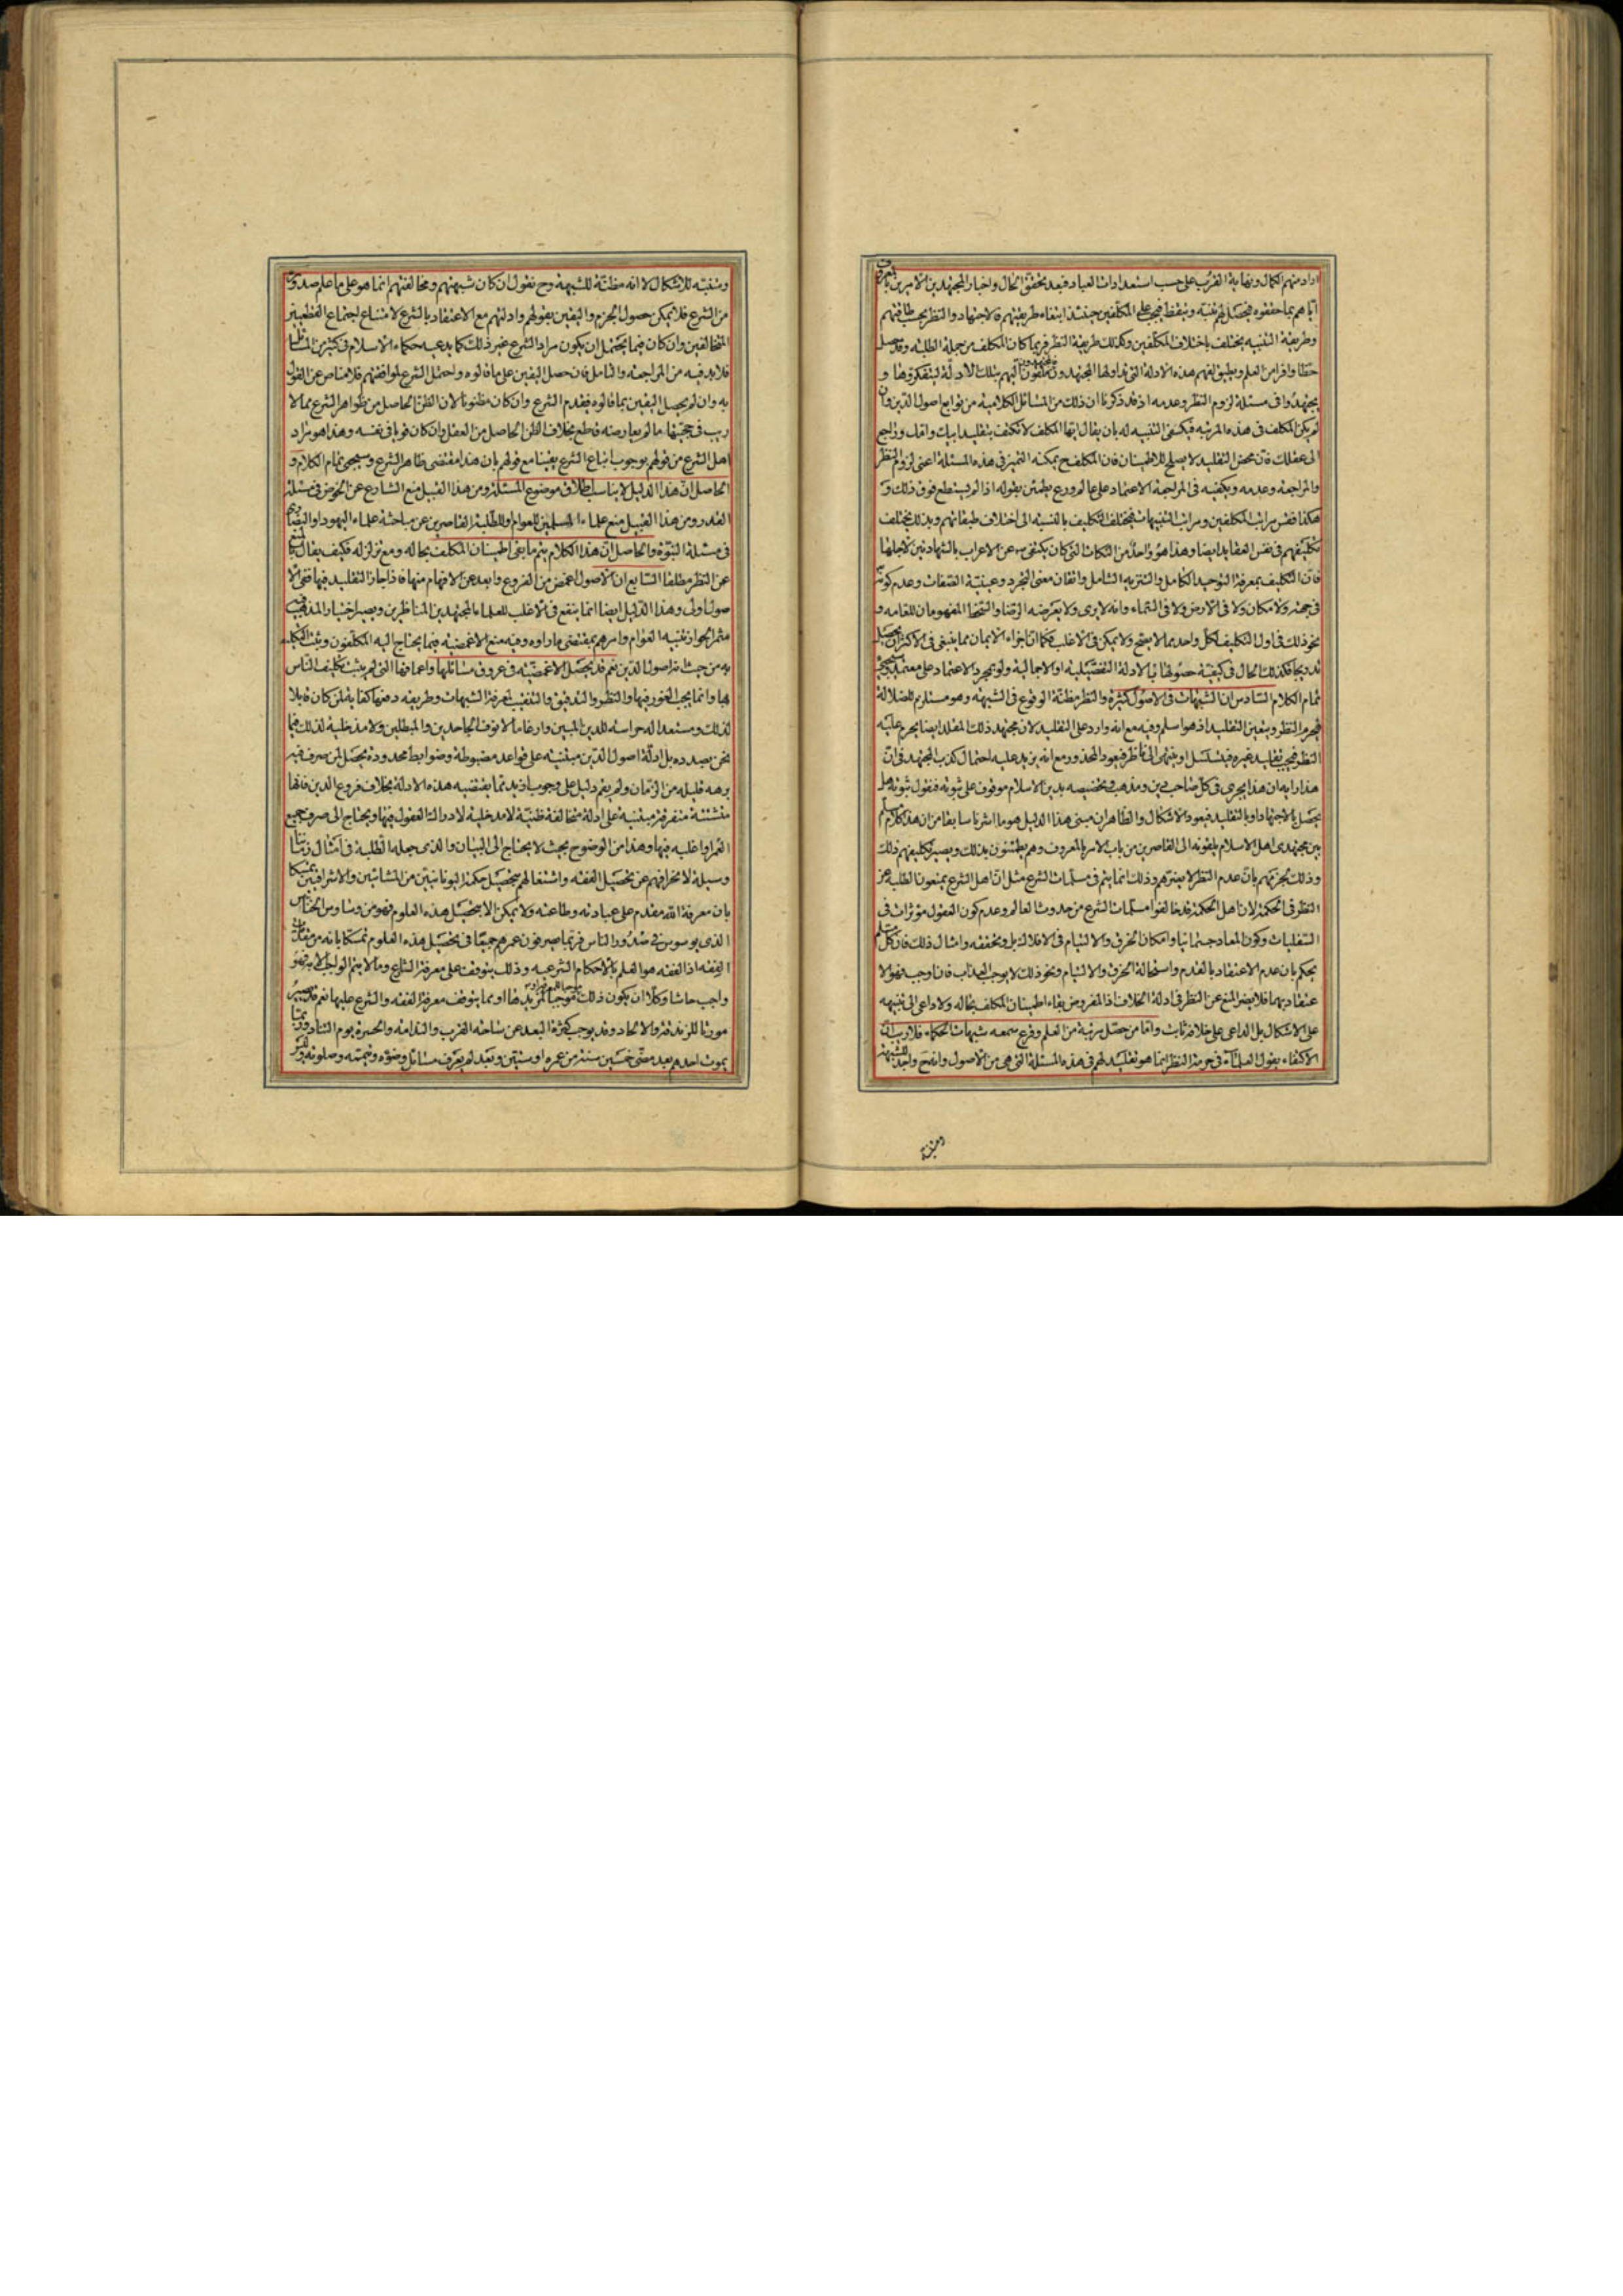 اراد منهم الكمال ونهاية القرب على حسب استعدادات العباد فبعد تحقق الحال واخبار المجتهدين الامرين بالمعروف
اياهم بما حققوه فيحصل لهم تنبه وتيقظ فيجب على المكلفين حينئذ ابتغاء طريقتهم فى الاجتهاد والنظر بحسب طاقتهم
وطريقة التنبيه يختلف باختلاف المكلفين وكذلك طريقة النظر فربما كان المكلف من جملة الطلبة وقد حصل
حظا وافرا من العلم ويليق لفهم هذه الادلة التى تداولها المجتهدون فيلقون اليهم بتلك الادلة ليتفكروها و
يجتهدوا فى مسئلة لزوم النظر وعدمه اذ قد ذكرنا ان ذلك من المسائل الكلامية من توابع اصول الدين وان
لم يكن المكلف فى هذه المرتبة فيكفى التنبيه له بان يقال ايها المكلف لا تكتف بتقليد ابيك وامك وراجع
الى عقلك فان محض التقليد لا يصلح للاطمينان فان المكلف ح يمكنه التميز فى هذه المسئلة اعنى لزوم النظر
والمراجعة وعدمه ويكفيه فى المراجعة الاعتماد على عالم ورع يطمئن بقوله اذا لم يستطع فوق ذلك و
هكذا فقس مراتب المكلفين ومراتب التنبيهات فيختلف التكليف بالنسبة الى اختلاف طبقاتهم وبذلك يختلف
تكليفهم فى نفس العقايد ايضا وهذا هو واحد من النكات التى كان يكتفى ص عن الاعراب بالشهادتين لاجلها
فان التكليف بمعرفة التوحيد الكامل والتنزيه الشامل واتقان معنى التجرد وعينية الصفات وعدم كونه
فى جهة ولا مكان ولا فى الارض ولا فى السماء وانه لا يرى ولا يعرضه الرضا والسخط المفهومان للعامة و
نحو ذلك فى اول التكليف لكل واحد مما لا يصح ولا يمكن فى الاغلب فكما ان اجزاء الايمان مما ينبغى فى الاكثر ان يحصل
تدريجا فكذلك الحال فى كيفية حصولها بالادلة التفصيلية او الاجمالية ولو بمجرد الاعتماد على معتمد وسيجئ
تمام الكلام السادس ان الشبهات فى الاصول كثيرة والنظر مظنة الوقوع فى الشبهة وهو مستلزم للضلالة
فيحرم النظر ويتعين التقليد اذ هو اسلم وفيه مع انه وارد على التقليد لان مجتهد ذلك المقلد ايضا يحرم عليه
النظر فيجب تقليد غيره فيتسلسل او ينتهى الى ناظر فيعود المحذور مع انه يزيد عليه احتمال كذب المجتهد فى ان
هذا رايه ان هذا يجرى فى كل صاحب دين ومذهب وتخصيصه بدين الاسلام موقوف على ثبوته فنقول ثبوته هل
يحصل بالاجتهاد او بالتقليد فيعود الاشكال والظاهر ان مبنى هذا الدليل هو ما اشرنا سابقا من ان هذا كلام
بين مجتهدى اهل الاسلام يلقونه الى القاصرين من باب الامر بالمعروف وهم يطمئنون بذلك ويصير تكليفهم ذلك
وذلك يجزيهم بان عدم النظر لا يضرهم وذلك انما يتم فى مسلمات الشرع مثل ان اهل الشرع يمنعون الطلبة عن
النظر فى الحكمة لان اهل الحكمة قد خالفوا مسلمات الشرع من حدوث العالم وعدم كون العقول مؤثرات فى
السفليات وكون المعاد جسمانيا وامكان الخرق والالتيام فى الافلاك بل وتحققه وامثال ذلك فان كل مسلم
يحكم بان عدم الاعتقاد بالقدم واستحالة الخرق والالتيام ونحو ذلك لا يوجب العذاب فانما وجب فهو الا
عتقاد بهما فلا يضر المنع عن النظر فى ادلة الخلاف اذ المفروض بقاء اطمينان المكلف بحاله ولا داعى الى تنبيهه
على الاشكال بل الداعى على خلافه ثابت واما من حصل مرتبة من العلم وقرع سمعه شبهات الحكماء فلا ريب ان
الاكتفاء بقول العلماء فى حرمة النظر انما هو تقليد لهم فى هذه المسئلة التى هى من الاصول وانه ح واجد للشبهة
ومنبه
ومنبه للاشكال لا انه مظنة للشبهة وح نقول ان كان شبهتهم ومخالفتهم انما هو على ما علم صدوره
من الشرع فلا يمكن حصول الجزم واليقين بقولهم وادلتهم مع الاعتقاد بالشرع لامتناع اجتماع القطعيين
المتخالفين وان كان فيما يحتمل ان يكون مراد الشرع غير ذلك كما يدعيه حكماء الاسلام فى كثير من المسائل
فلا بد فيه من المراجعة والتامل فان حصل اليقين على ما قالوه واحتمل الشرع لموافقتهم فلا مناص عن القول
به وان لم يحصل اليقين بما قالوه فيقدم الشرع وان كان مظنونا لان الظن الحاصل من ظواهر الشرع مما لا
ريب فى حجيتها ما لم يعارضه قطع بخلاف الظن الحاصل من العقل وان كان قويا فى نفسه وهذا هو مراد
اهل الشرع من قولهم بوجوب اتباع الشرع يقينا مع قولهم بان هذا مقتضى ظاهر الشرع وسيجئ تمام الكلام و
الحاصل ان هذا الدليل لا يناسب اطلاق موضوع المسئلة ومن هذا القبيل منع الشارع عن الخوض فى مسئلة
القدر ومن هذا القبيل منع علماء المسلمين للعوام وللطلبة القاصرين عن مباحثة علماء اليهود او النصارى
فى مسئلة النبوة والحاصل ان هذا الكلام يتم ما بقى اطمينان المكلف بحاله ومع تزلزله فكيف يقال بالمنع
عن النظر مطلقا السابع ان الاصول اغمض من الفروع وابعد عن الافهام منها فاذا جاز التقليد فيها ففى الا
صول اولى وهذا الدليل ايضا انما ينفع فى الاغلب للعلماء المجتهدين المناظرين ويصير اختيار المذهب فيه
مثمرا لجواز تنبيه العوام وامرهم بمقتضى ما راوه وفيه منع الاغمضية فيما يحتاج اليه المكلفون ويثبت التكليف
به من حيث انه اصول الدين نعم قد يحصل الاغمضية فى عروق مسائلها واعماقها التى لم يثبت تكليف الناس
بها وانما يجب الغور فيها والنظر والتدقيق والتنقيب لمعرفة الشبهات وطريقة دفعها كفاية لمن كان قابلا
لذلك ومستعدا له حراسة للدين المبين وارغاما لانوف الجاحدين والمبطلين ولا مدخلية لذلك فيما
نحن بصدده بل ادلة اصول الدين مبتنية على قواعد مضبوطة وضوابط محدودة يحصل لمن صرف فيه
برهة قليلة من الزمان ولم يقم دليل على وجوب ازيد مما يقتضيه هذه الادلة بخلاف فروع الدين فانها
متشتتة متفرقة مبتنية على ادلة متخالفة ظنية لا مدخلية لادراك العقول فيها ويحتاج الى صرف جميع
العمر او اغلبه فيها وهذا من الوضوح بحيث لا يحتاج الى البيان والذى جعله الطلبة فى امثال زماننا
وسيلة لانحرافهم عن تحصيل الفقه واشتغالهم بتحصيل حكمة اليونانيين من المشائين والاشراقيين تمسكا
بان معرفة الله مقدم على عبادته وطاعته ولا يمكن الا بتحصيل هذه العلوم فهو من وساوس الخناس
الذى يوسوس فى صدور الناس فربما يصرفون عمرهم جميعا فى تحصيل هذه العلوم تمسكا بانه من مقدمات
الفقه اذ الفقه هو العلم بالاحكام الشرعية وذلك يتوقف على معرفة الشارع وما لا يتم الواجب الا به فهو
واجب حاشا وكلا ان يكون ذلك موجبا لمزيدها او مما يتوقف معرفة الفقه والشرع عليها نعم قد يصير
مورثا للزندقة والالحاد وقد يوجب كثرة البعد عن ساحة القرب والندامة والحسرة يوم التناد وربما
يموت احدهم بعد مضى خمسين سنة من عمره او ستين وبعد لم يعرف مسائل وضوئه وتيممه وصلوته